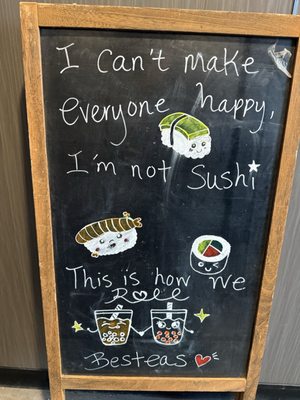 I can't make
everyone happy,
I'm not Sushi
This is how we
Roll
Besteas